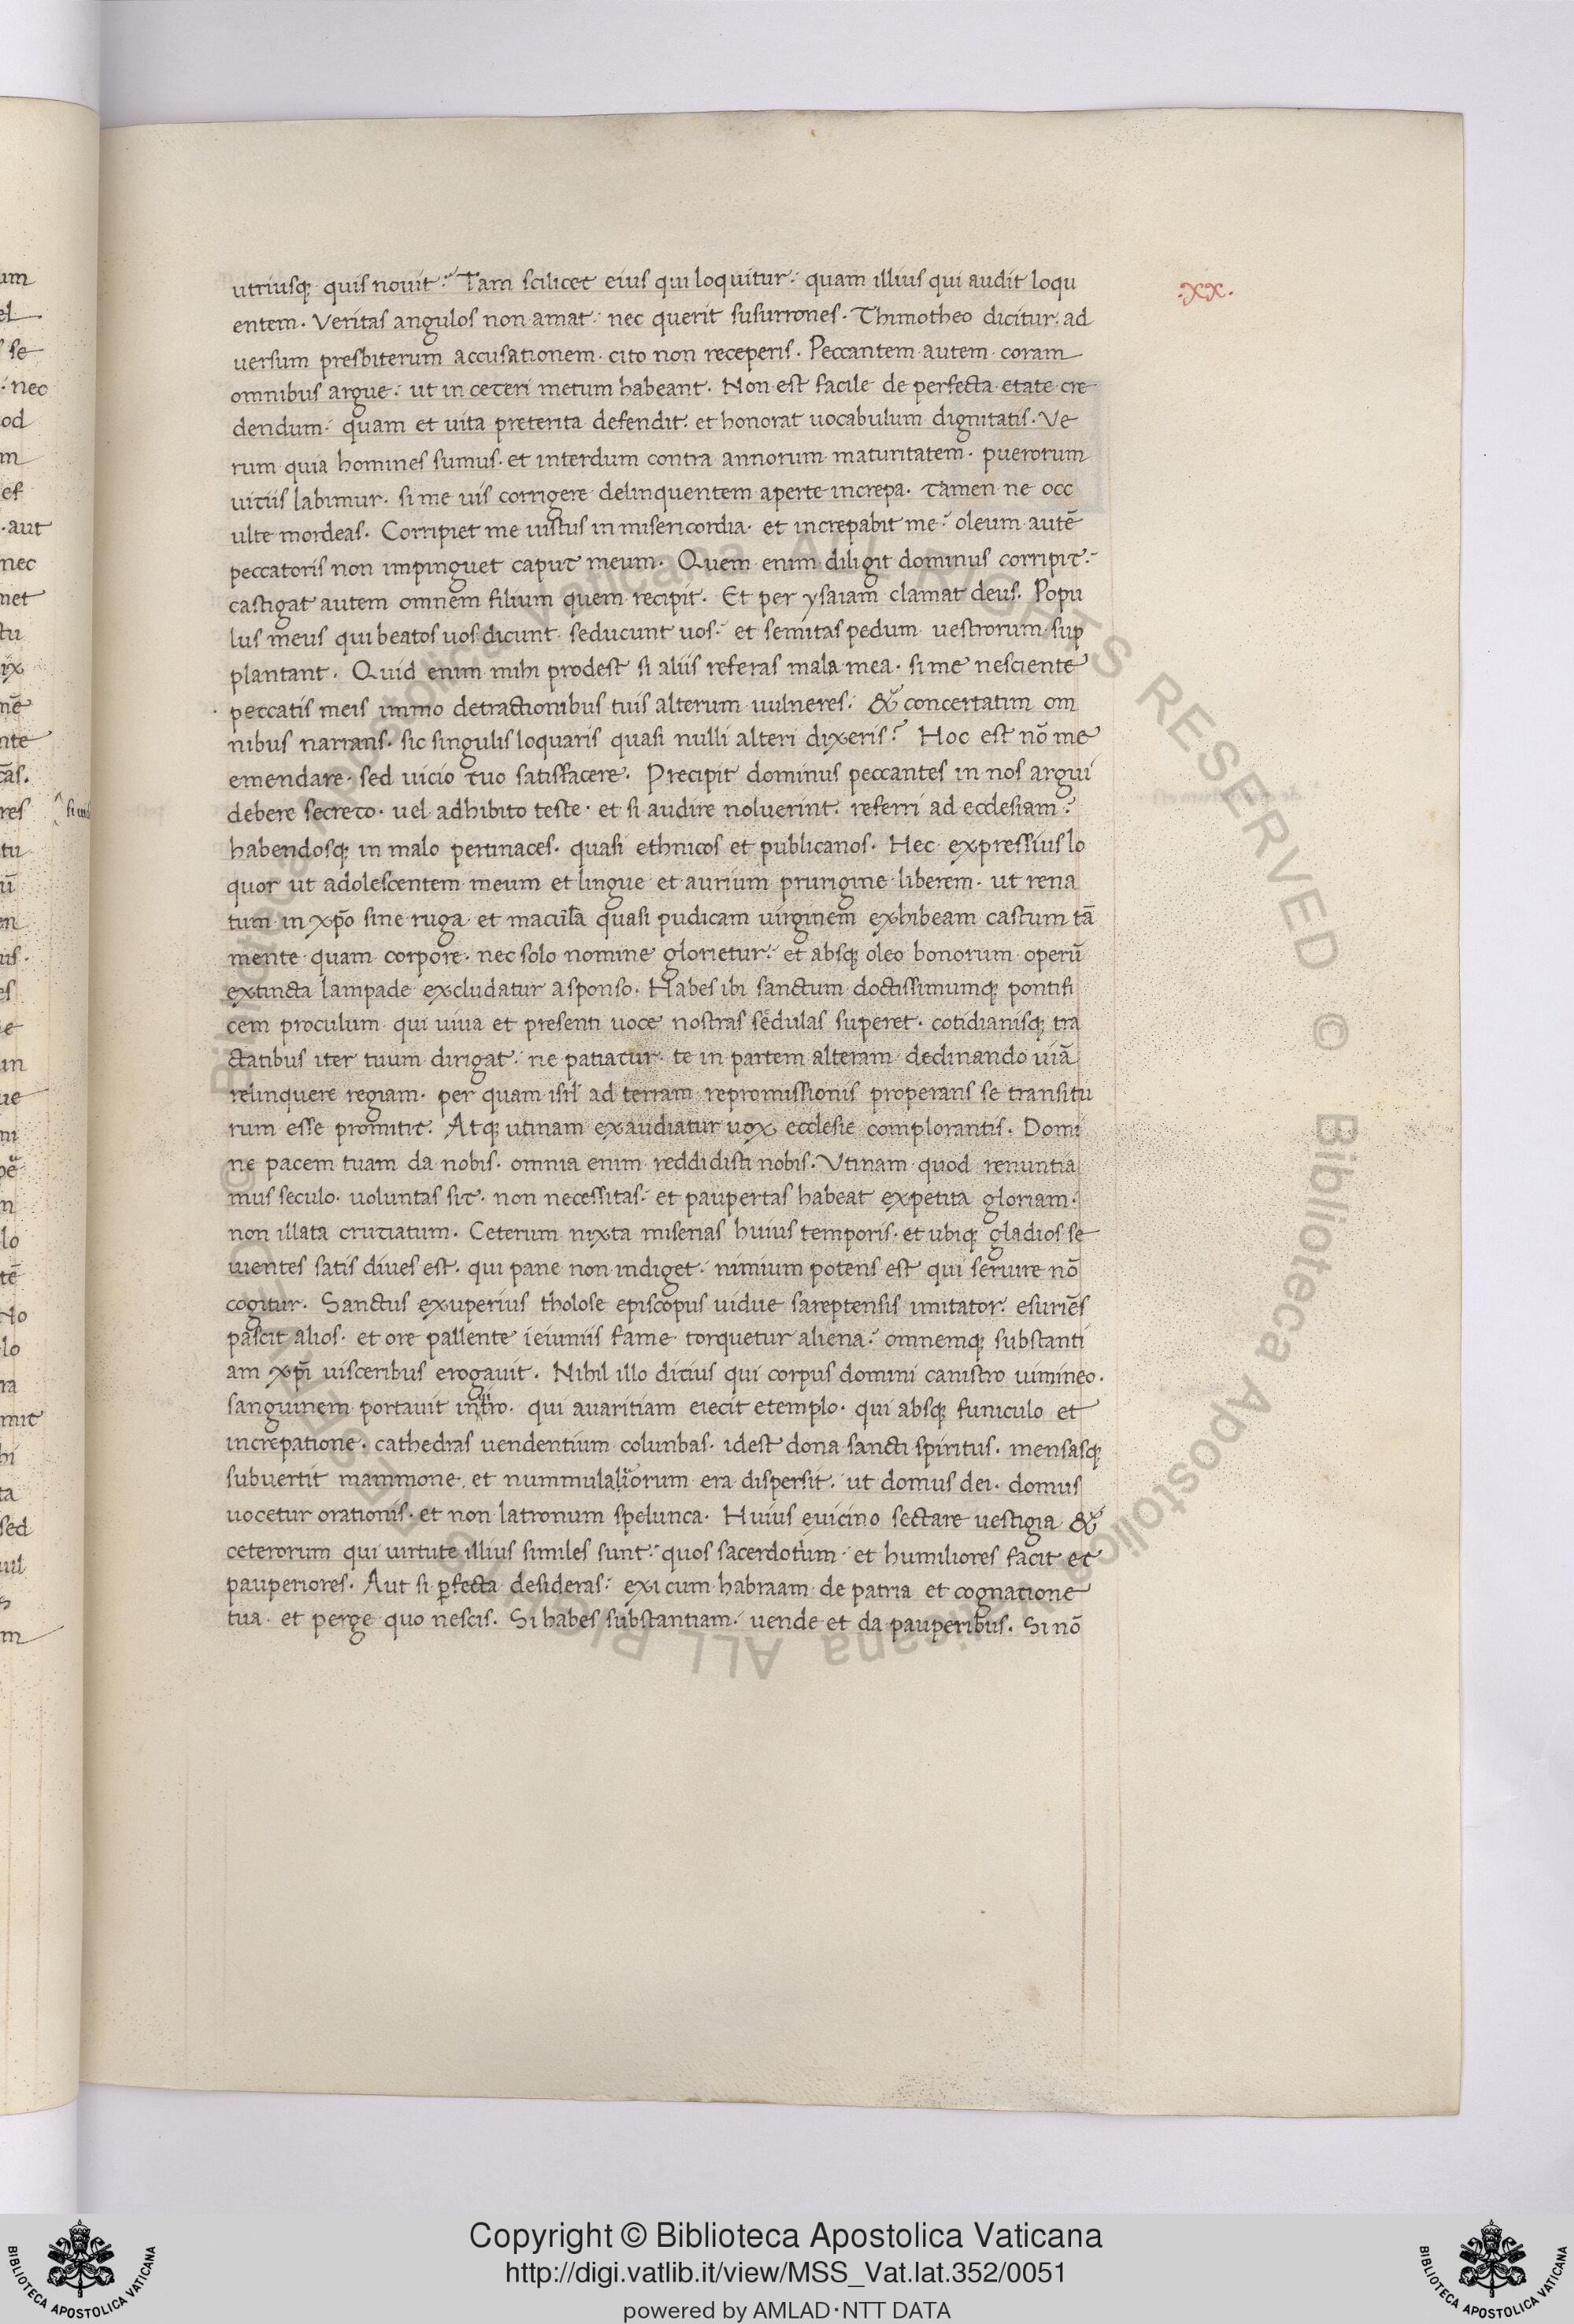 .xx.
utriusq; quis nouit? Tam scilicet eius qui loquitur: quam illius qui audit loqu
entem. Veritas angulos non amat: nec querit susurrones. Thimotheo dicitur: ad
uersum presbiterum accusationem cito non receperis. Peccantem autem coram
omnibus argue: ut in ceteri metum habeant. Non est facile de perfecta etate cre
dendum: quam et uita preterita defendit: et honorat uocabulum dignitatis. Ve
rum quia homines sumus. et interdum contra annorum maturitatem. puerorum
uitiis labimur. si me uis corrigere delinquentem aperte increpa. tamen ne occ
ulte mordeas. Corripiet me iustus in misericordia. et increpabit me: oleum autē
peccatoris non impinguet caput meum. Quem enim diligit dominus corripit:
castigat autem omnem filium quem recipit. Et per ysaiam clamat deus. Popu
lus meus qui beatos uos dicunt seducunt uos: et semitas pedum uestrorum sup
plantant. Quid enim mihi prodest si aliis referas mala mea. si me nesciente
peccatis meis immo detractionibus tuis alterum uulneres: & concertatim om
nibus narrans. sic singulis loquaris quasi nulli alteri dixeris? Hoc est nō me
emendare. sed uicio tuo satisfacere. Precipit dominus peccantes in nos argui
debere secreto. uel adhibito teste. et si audire noluerint. referri ad ecclesiam:
habendosq; in malo pertinaces. quasi ethnicos et publicanos. Hec expressius lo
quor ut adolescentem meum et lingue et aurium prurigine liberem. ut rena
tum in xp̄o sine ruga et macula quasi pudicam uirginem exhibeam castum tā
mente quam corpore. nec solo nomine glorietur: et absq; oleo bonorum operū
extincta lampade excludatur a sponso. Habes ibi sanctum doctissimumq; pontifi
cem proculum qui uiua et presenti uoce nostras sedulas superet. cotidianisq; tra
ctatibus iter tuum dirigat: ne patiatur te in partem alteram declinando uiā
relinquere regiam. per quam isrl ad terram repromissionis properans se transitu
rum esse promitit. Atq; utinam exaudiatur uox ecclesie complorantis. Domi
ne pacem tuam da nobis. omnia enim reddidisti nobis. Vtinam quod renuntia
mus seculo. uoluntas sit. non necessitas: et paupertas habeat expetita gloriam.
non illata cruciatum. Ceterum nixta miserias huius temporis. et ubiq; gladios se
uientes satis diues est. qui pane non indiget. nimium potens est qui seruire nō
cogitur. Sanctus exuperius tholose episcopus uidue sareptensis imitator. esuriēs
pascit alios. et ore pallente ieiuniis fame torquetur aliena: omnemq; substanti
am xp̄i uisceribus erogauit. Nihil illo ditius qui corpus domini canistro uimineo.
sanguinem portauit intro. qui auaritiam eiecit etemplo. qui absq; funiculo et
increpatione. cathedras uendentium colunbas. idest dona sancti spiritus. mensasq;
subuertit mammone. et nummulariorum era dispersit. ut domus dei. domus
uocetur orationis. et non latronum spelunca. Huius euicino sectare uestigia &
ceterorum qui uirtute illius similes sunt: quos sacerdotium et humiliores facit et
pauperiores. Aut si p̄fecta desideras: exi cum habraam de patria et cognatione
tua. et perge quo nescis. Si habes substantiam. uende et da pauperibus. Si nō
Copyright © Biblioteca Apostolica Vaticana
http://digi.vatlib.it/view/MSS_Vat.lat.352/0051
powered by AMLAD·NTT DATA